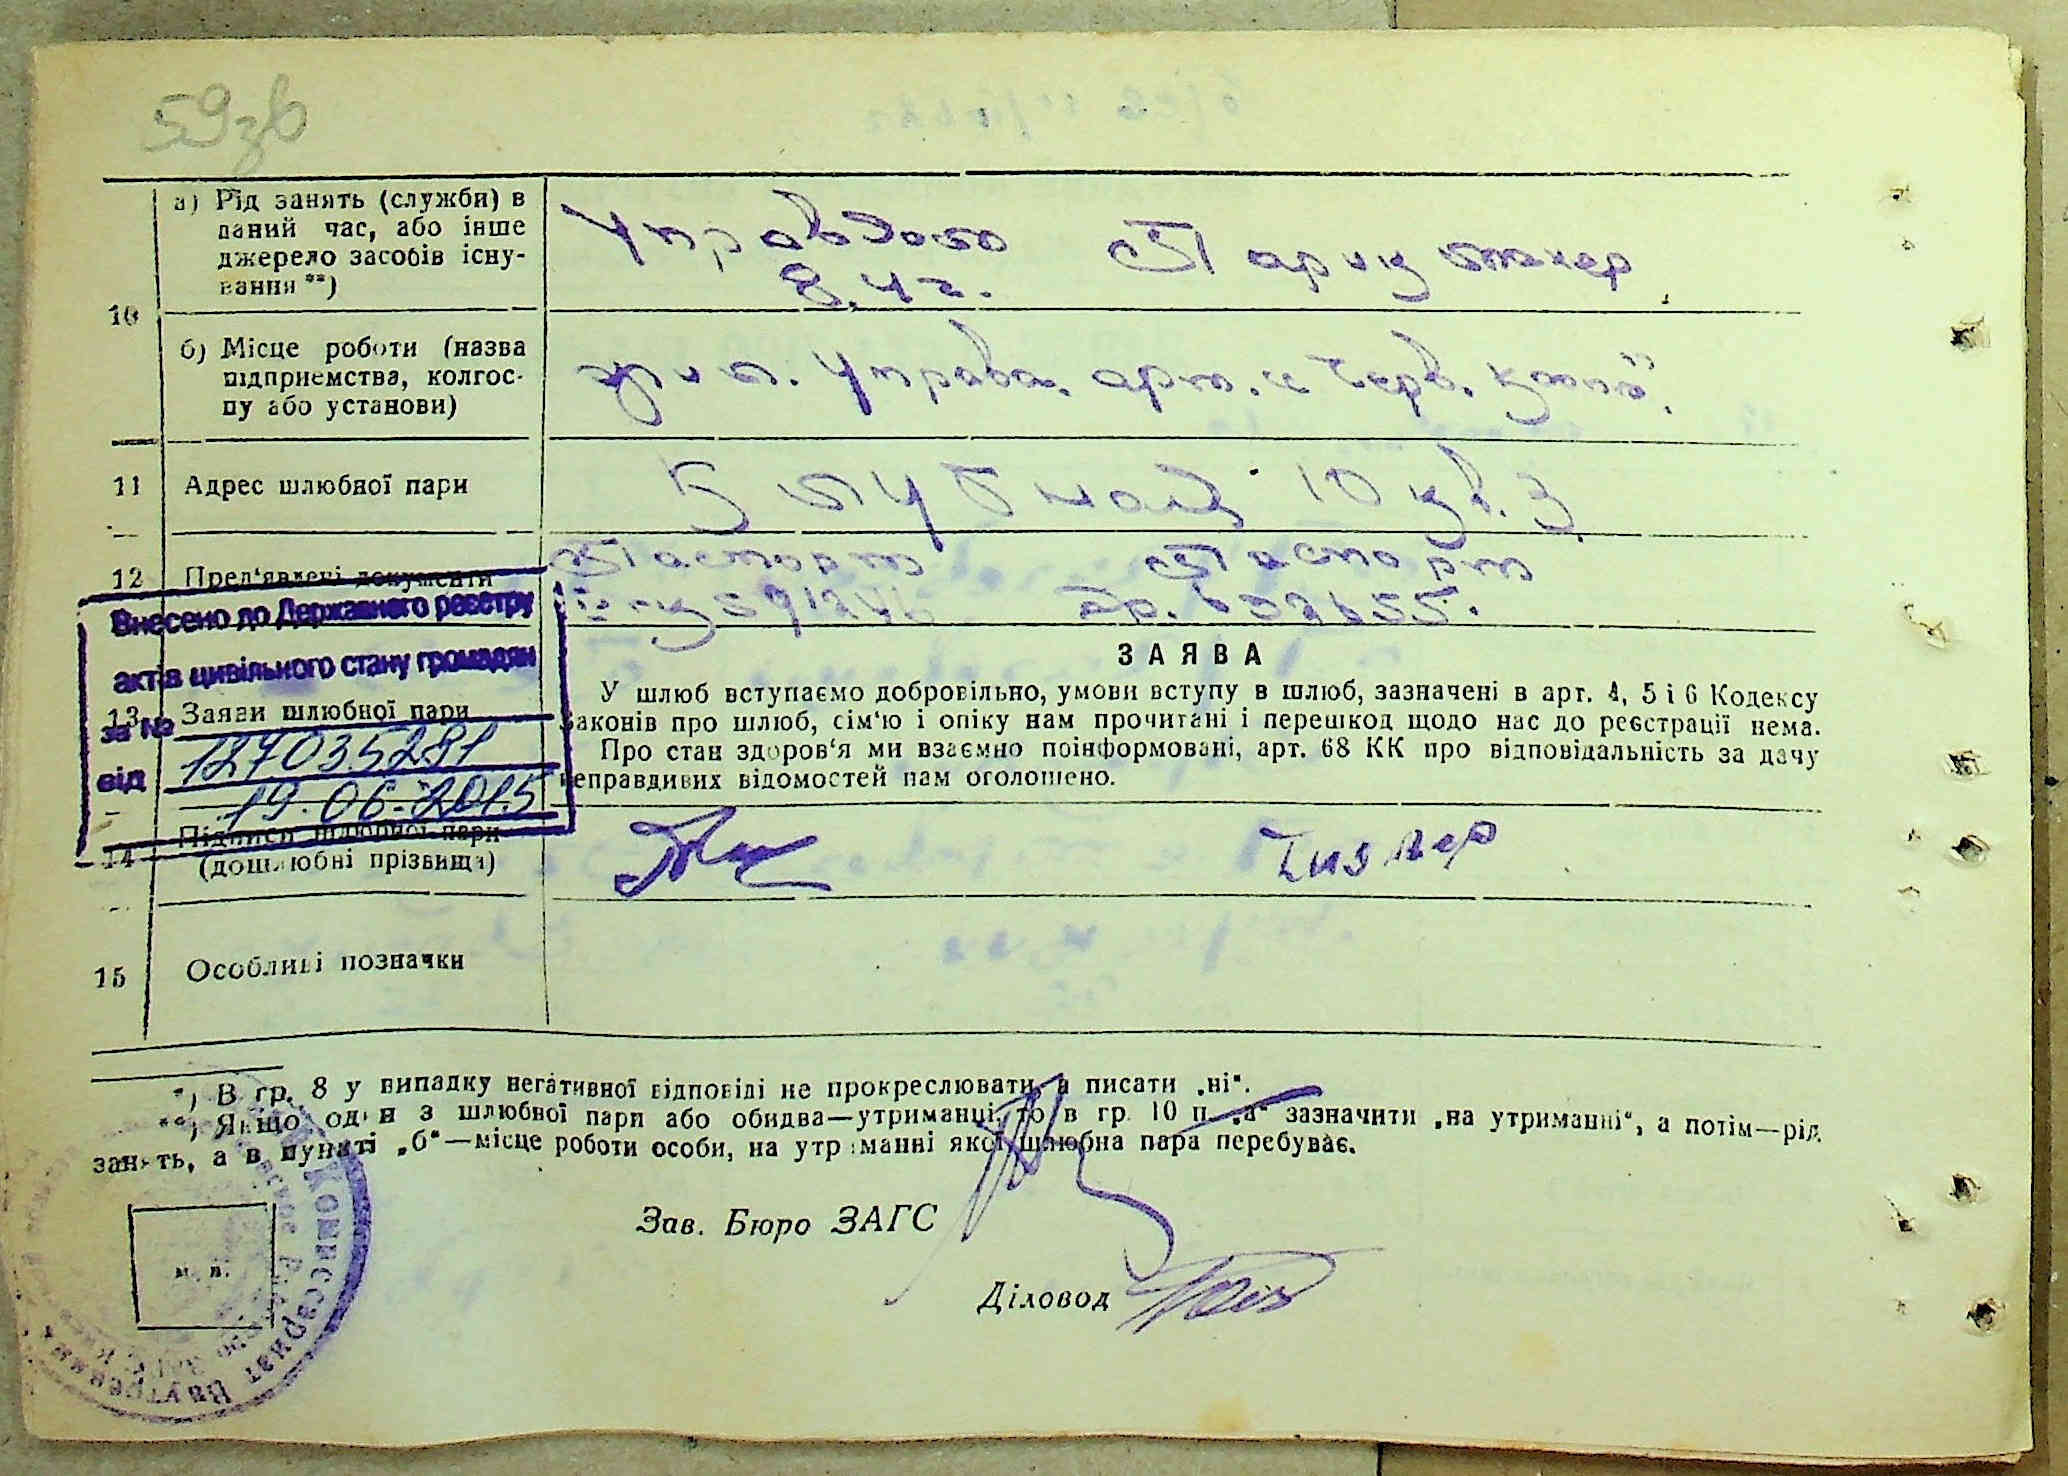 59зв
10
а) Рід занять (служби) в
даний час, або інше
джерело засобів існу-
вання **)
Управдом Парикмахер
б) Місце роботи (назва
підприємства, колгос-
пу або установи)
Управ. арт. „Черв.
11 Адрес шлюбної пари
10 кв. 3
12 Пред'явлені документи
Паспорт Паспорт
Внесено до Державного реєстру
актів цивільного стану громадян
за №
127035291
від
19.06.2015
13 Заяви шлюбної пари
ЗАЯВА
У шлюб вступаємо добровільно, умови вступу в шлюб, зазначені в арт. 4, 5 і 6 Кодексу
законів про шлюб, сім'ю і опіку нам прочитані і перешкод щодо нас до реєстрації нема.
Про стан здоров'я ми взаємно поінформовані, арт. 68 КК про відповідальність за дачу
неправдивих відомостей нам оголошено.
14 Підписи шлюбної пари
(дошлюбні прізвища)
15 Особливі позначки
*) В гр. 8 у випадку негативної відповіді не прокреслювати, а писати „ні".
**) Якщо один з шлюбної пари або обидва—утриманці, то в гр. 10 п. „а" зазначити „на утриманні", а потім—рід
занять, а в пункті „б"—місце роботи особи, на утриманні якої шлюбна пара перебуває.
Зав. Бюро ЗАГС
Діловод
м. п.
Комиссариат Внутренних